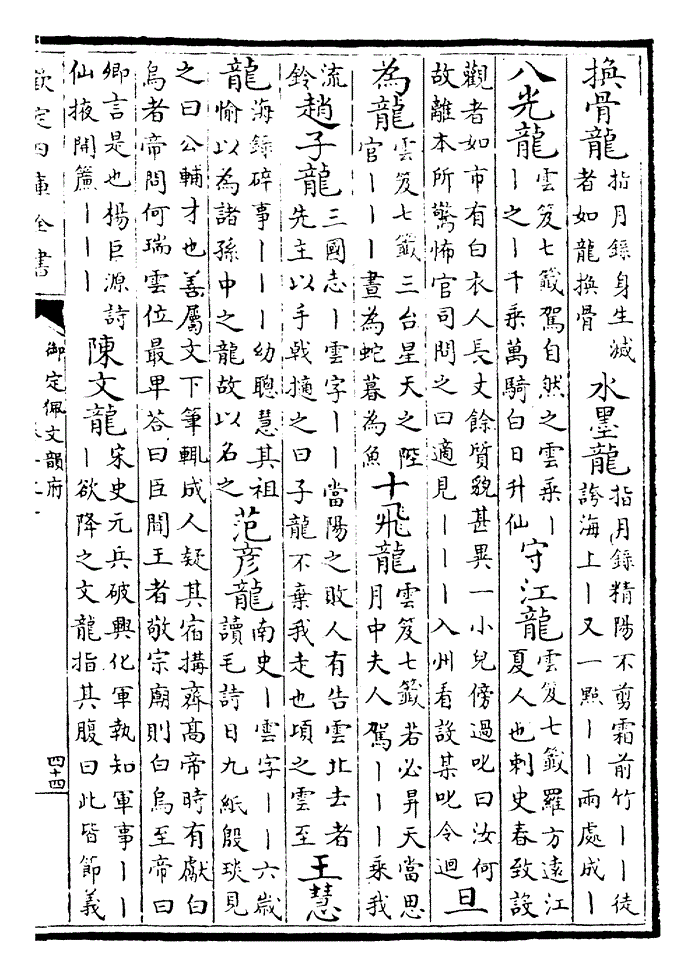 換骨龍指月錄身生滅者如龍換骨 水墨龍指月錄精陽不剪霜前竹丨丨徒誇海上丨又一點丨丨兩處成丨
八光龍雲笈七籤駕自然之雲乘丨丨之丨千乘萬騎白日升仙 守江龍雲笈七籤羅方遠江夏人也刺史春致設
觀者如市有白衣人長丈餘質貌甚異一小兒傍過叱曰汝何故離本所驚怖官司問之曰適見丨丨丨入州看設某叱令迴 旦
為龍雲笈七籤三台星天之陛官丨丨丨晝為蛇暮為魚 十飛龍雲笈七籤若必昇天當思月中夫人駕丨丨丨乘我
流鈴 趙子龍三國志丨雲字丨丨當陽之敗人有告雲北去者先主以手戟擿之曰子龍不棄我走也頃之雲至 王慧
龍海錄碎事丨丨丨幼聰慧其祖愉以為諸孫中之龍故以名之 范彥龍南史丨雲字丨丨六歲讀毛詩日九紙殷琰見
之曰公輔才也善屬文下筆輒成人疑其宿搆齊高帝時有獻白烏者帝問何瑞雲位最卑荅曰臣聞王者敬宗廟則白烏至帝曰
卿言是也楊巨源詩仙掖開簾丨丨丨 陳文龍宋史元兵破興化軍執知軍事丨丨丨欲降之文龍指其腹曰此皆節義
欽定四庫全書
御定佩文韻府
四十四